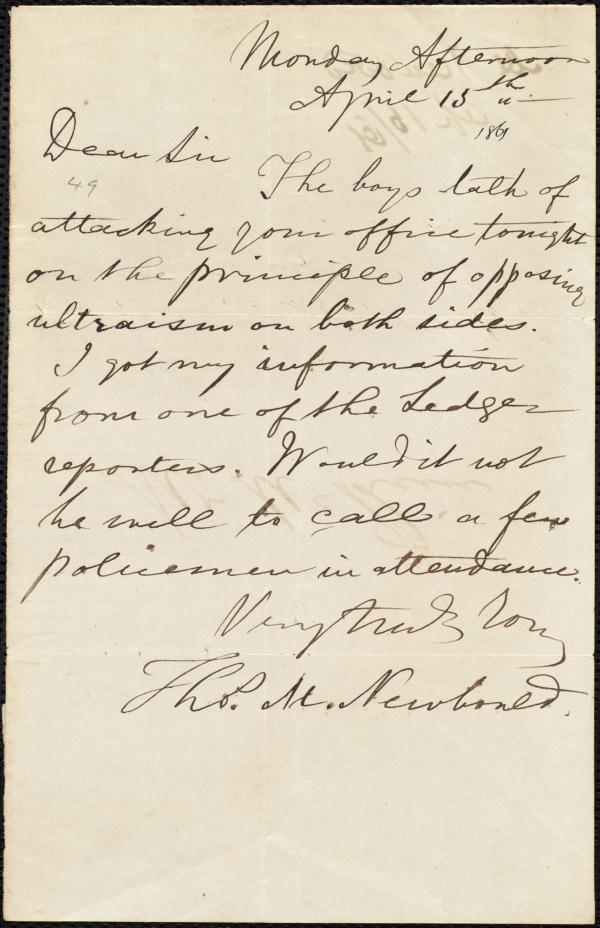 Monday Afternoon
April 15th
1861
Dear Sir
49
The boys talk of
attacking your office tonight
on the principle of opposing
ultraism on both sides.
I got my information
from one of the Ledger
reporters. Would it not
be well to call a few
policemen in attendance.
Very truly Yours
Thos. M. Newbould.